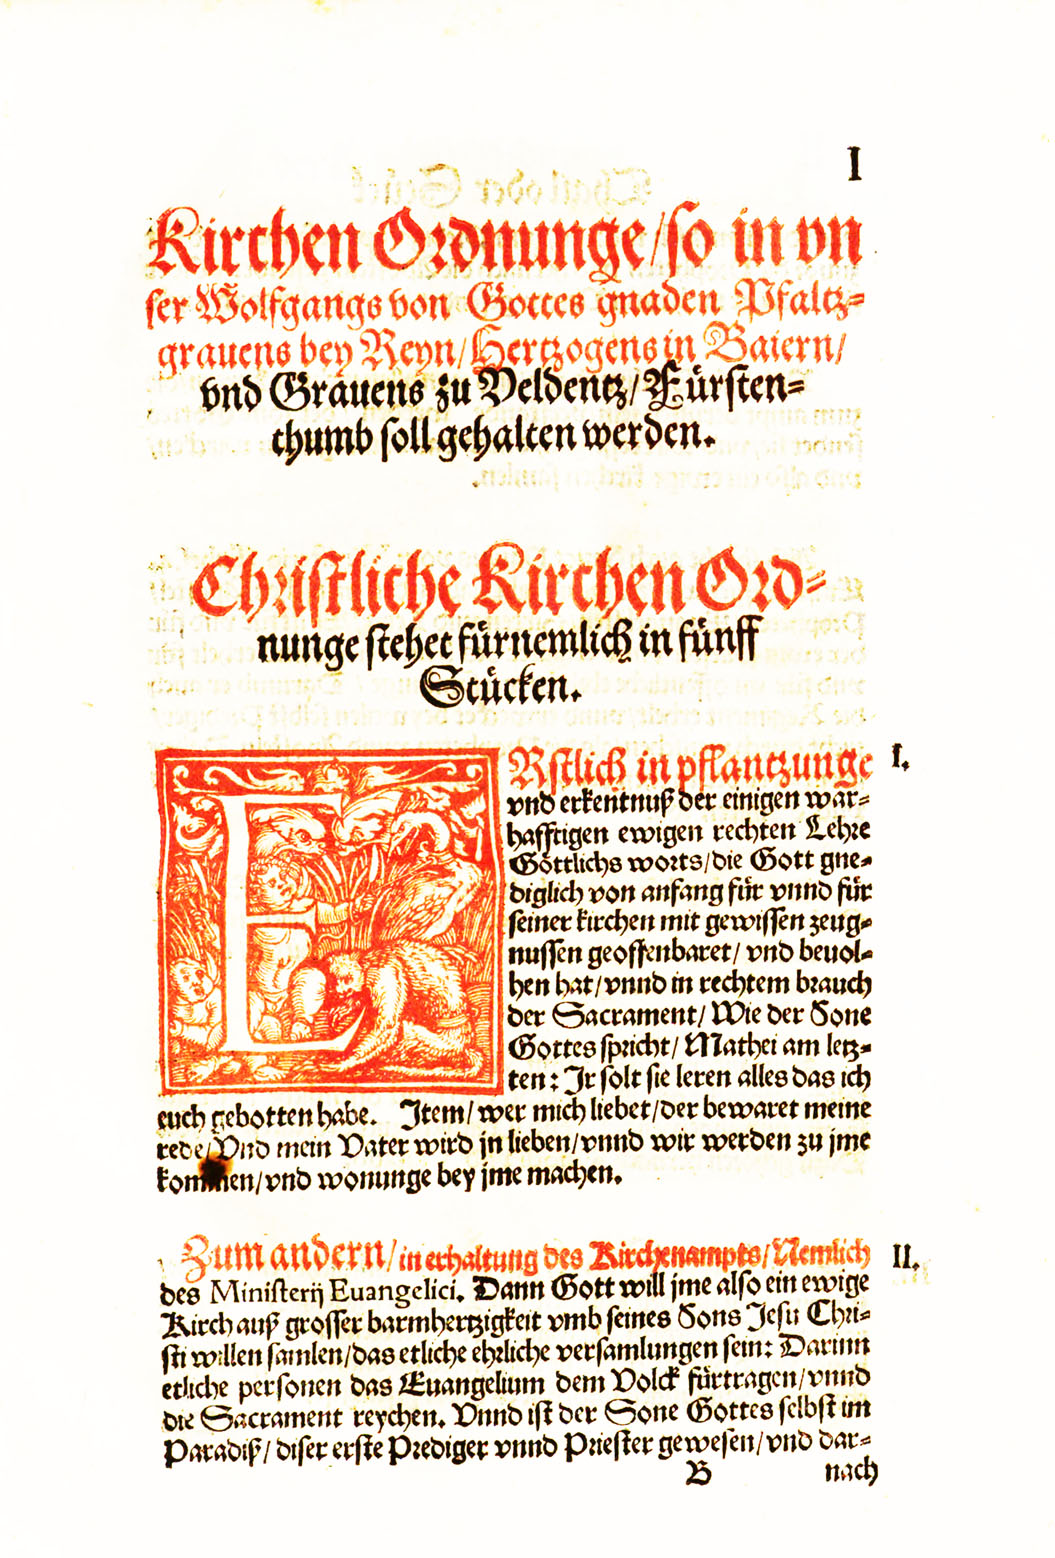 I
Kirchen Ordnunge/so in vn
ser Wolfgangs von Gottes gnaden Pfaltz-
grauens bey Reyn/Hertzogens in Baiern/
vnd Grauens zu Veldentz/Fürsten-
thumb soll gehalten werden.
Christliche Kirchen Ord-
nunge stehet fürnemlich in fünff
Stücken.
ERstlich in pflantzunge I.
vnd erkentnuß der einigen war-
hafftigen ewigen rechten Lehre
Göttlichs worts/die Gott gne-
diglich von anfang für vnnd für
seiner kirchen mit gewissen zeug-
nussen geoffenbaret/vnd beuol-
hen hat/vnnd in rechtem brauch
der Sacrament/Wie der Sone
Gottes spricht/Mathei am letz-
ten: Jr solt sie leren alles das ich
euch gebotten habe. Jtem/wer mich liebet/der bewaret meine
rede/Vnd mein Vater wird jn lieben/vnnd wir werden zu jme
kommen/vnd wonunge bey jme machen.
Zum andern/in erhaltung des Kirchenampts/Nemlich II.
des Ministerij Euangelici. Dann Gott will jme also ein ewige
Kirch auß grosser barmhertzigkeit vmb seines Sons Jesu Chri-
sti willen samlen/das etliche ehrliche versamlungen sein: Darinn
etliche personen das Euangelium dem Volck fürtragen/vnnd
die Sacrament reychen. Vnnd ist der Sone Gottes selbst im
Paradiß/diser erste Prediger vnnd Priester gewesen/vnd dar-
B nach